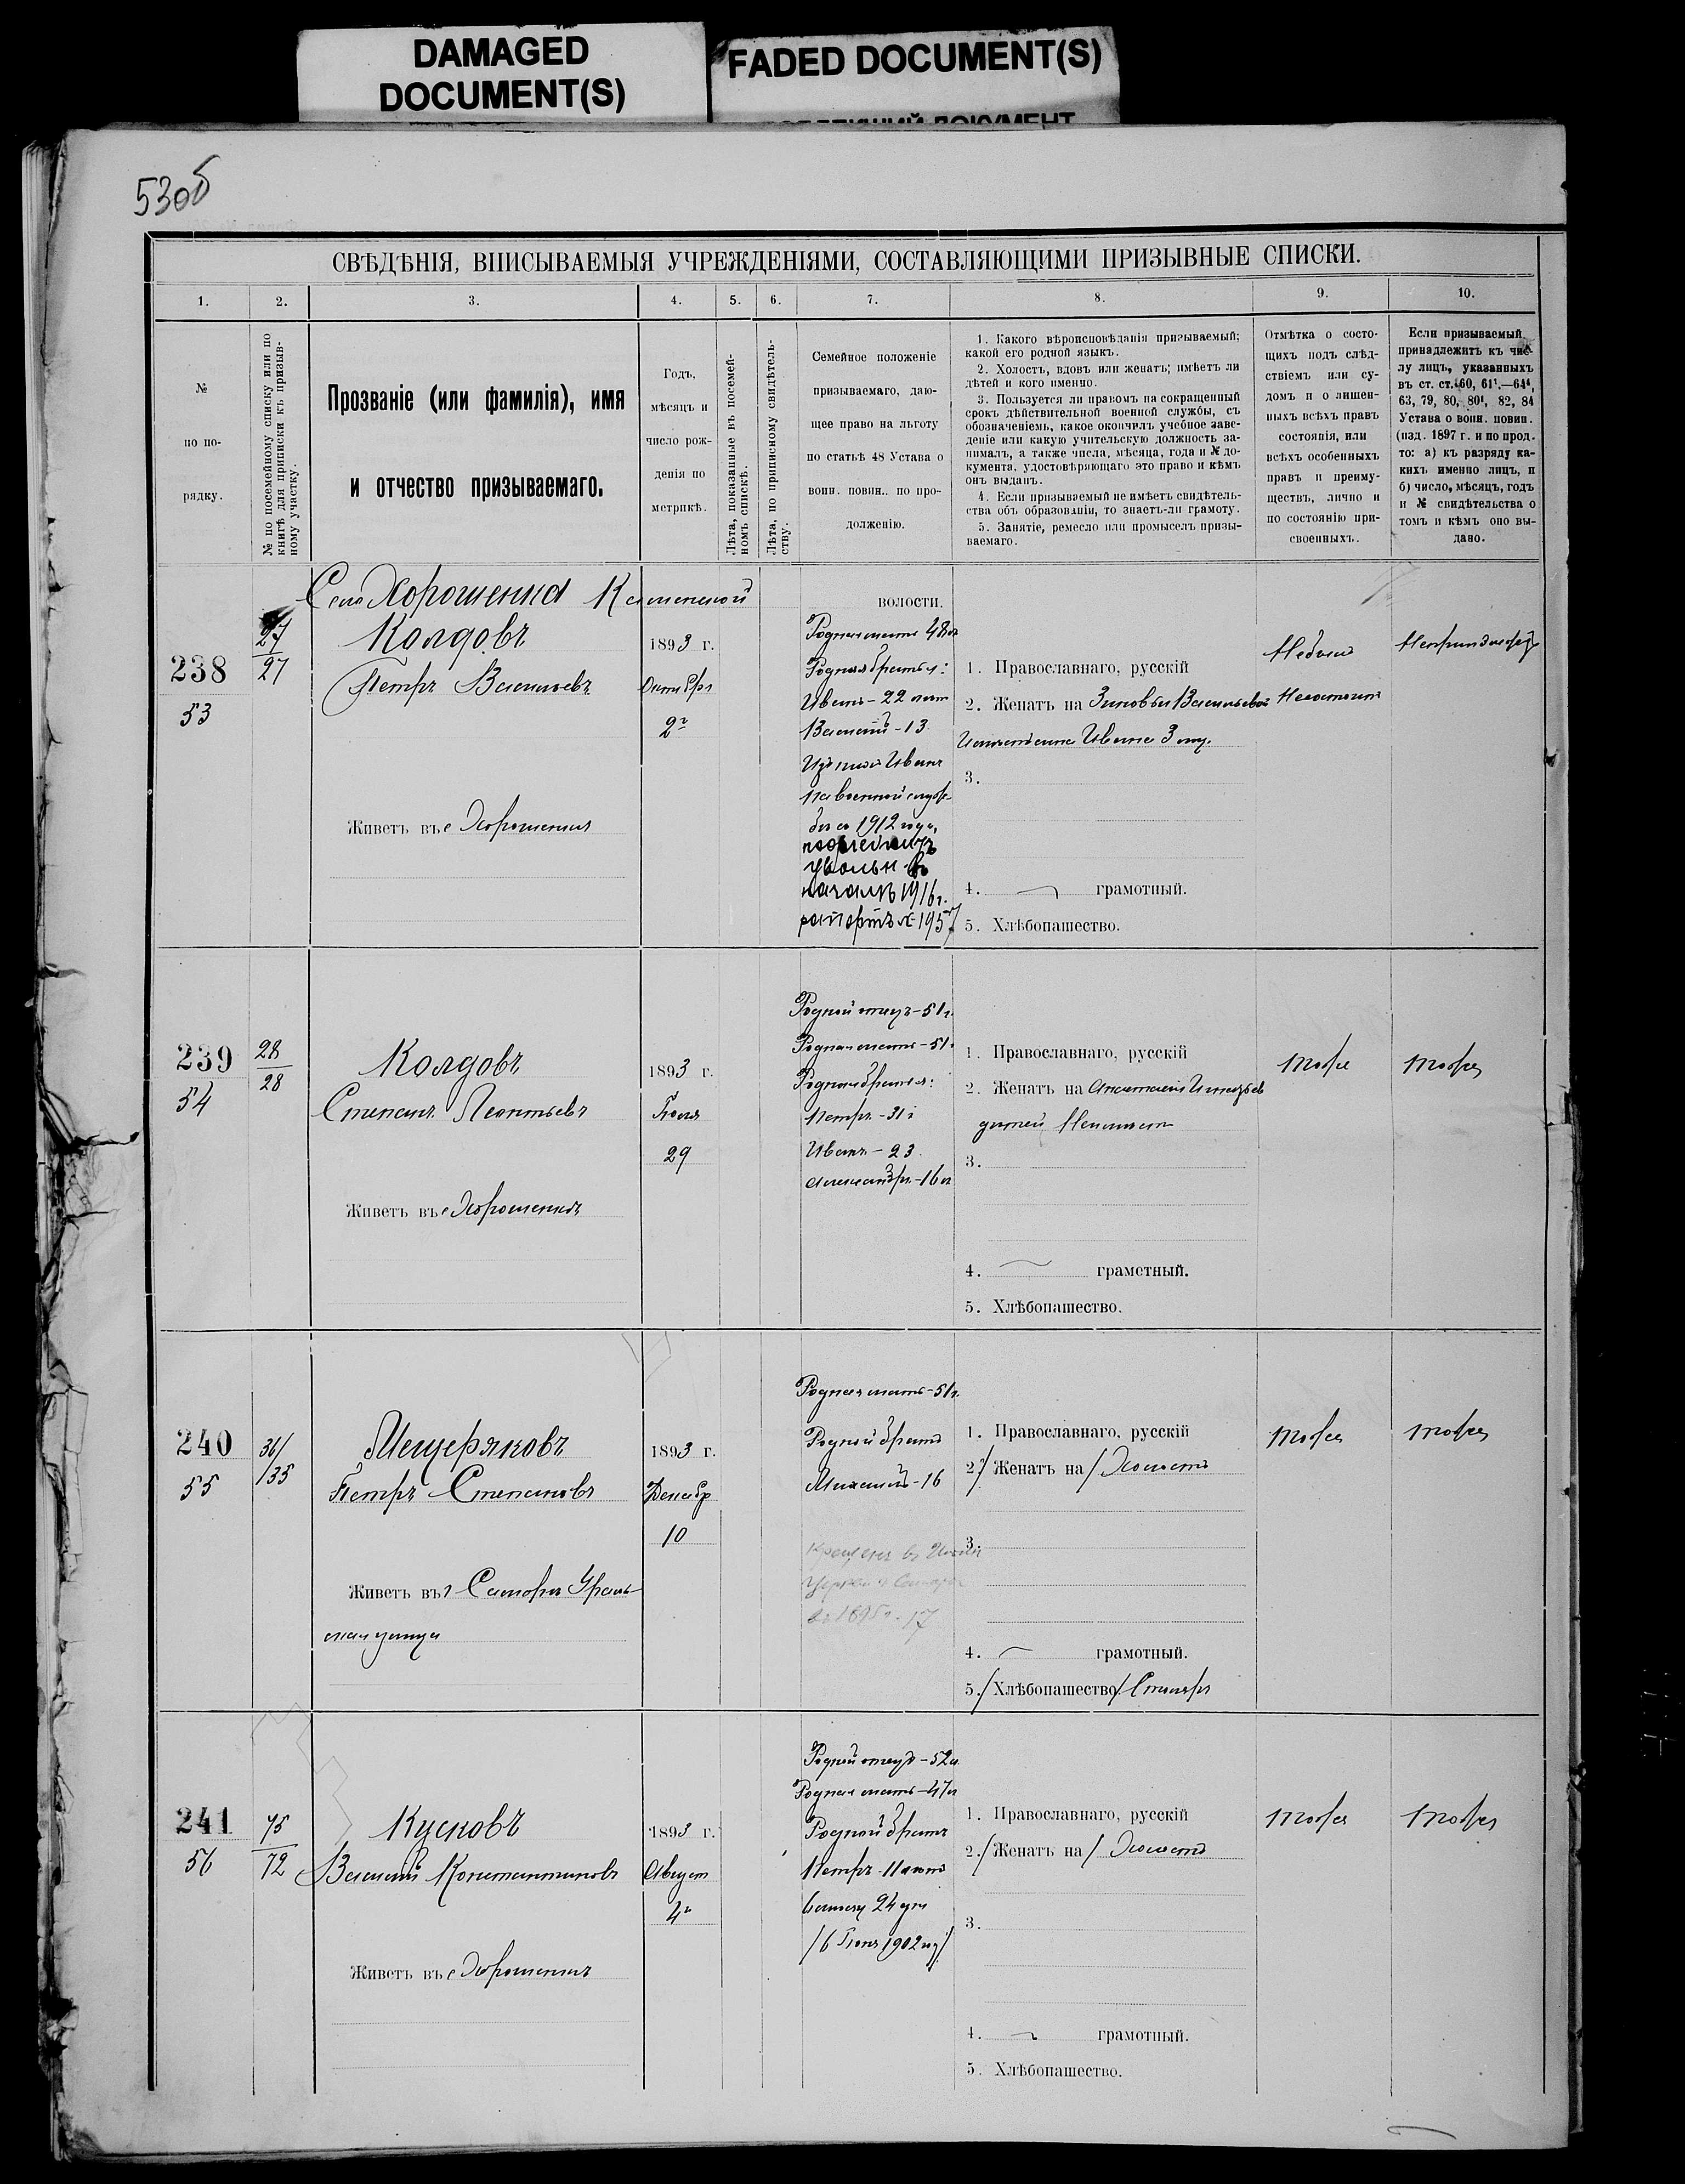 DAMAGED
DOCUMENT(S)
FADED DOCUMENT(S)
530б
СВѢДѢНІЯ, ВПИСЫВАЕМЫЯ УЧРЕЖДЕНІЯМИ, СОСТАВЛЯЮЩИМИ ПРИЗЫВНЫЕ СПИСКИ.
1. 2. 3. 4. 5. 6. 7. 8. 9. 10.
№
по по-
рядку.
№ по посемейному списку или по
книгѣ для приписки къ призыв-
ному участку.
Прозваніе (или фамилія), имя
и отчество призываемаго.
Годъ,
мѣсяцъ и
число рож-
денія по
метрикѣ.
Лѣта, показанные въ посемей-
номъ спискѣ.
Лѣта, по приписному свидѣтель-
ству.
Семейное положеніе
призываемаго, даю-
щее право на льготу
по статьѣ 48 Устава о
воин. повин.. по про-
долженію.
1. Какого вѣроисповѣданія призываемый;
какой его родной языкъ.
2. Холостъ, вдовъ или женатъ; имѣетъ ли
дѣтей и кого именно.
3. Пользуется ли правомъ на сокращенный
срокъ дѣйствительной военной службы, съ
обозначеніемъ, какое окончилъ учебное заве-
деніе или какую учительскую должность за-
нималъ, а также числа, мѣсяца, года и № до-
кумента, удостовѣряющаго это право и кѣмъ
онъ выданъ.
4. Если призываемый не имѣетъ свидѣтель-
ства объ образованіи, то знаетъ-ли грамоту.
5. Занятіе, ремесло или промыселъ призы-
ваемаго.
Отмѣтка о состо-
щихъ подъ слѣд-
ствіемъ или су-
домъ и о лишен-
ныхъ всѣхъ правъ
состоянія, или
всѣхъ особенныхъ
правъ и преиму-
ществъ, лично и
по состоянію при-
своенныхъ.
Если призываемый
принадлежитъ къ чис-
лу лицъ, указанныхъ
въ ст. ст. 60, 61¹.—64⁴,
63, 79, 80, 80¹, 82, 84
Устава о воин. повин.
(изд. 1897 г. и по прод.
то: а) къ разряду ка-
кихъ именно лицъ, и
б) число, мѣсяцъ, годъ
и № свидѣтельства о
томъ и кѣмъ оно вы-
дано.
Село Хорошенка Каменской волости.
238
53
27
27
Колдовъ
Петръ Васильевъ
Живетъ въ с Хорошенки
1893 г.
Октября
2го
Родная мать 48 л
Родные братья:
Иванъ - 22 лет
Василій - 13
Изъ них Иванъ
на военной служ-
бе со 1912 года,
подлежитъ
увольн въ
началѣ 1916 г.
рапортъ № 1957
1. Православнаго, русскій
2. Женатъ на Зиновьи Васильевой
Иванъ 3 мц.
3.
4. грамотный.
5. Хлѣбопашество.
Небылъ
Несостоитъ
Непринадлежитъ
239
54
28
28
Колдовъ
Степанъ Леонтьевъ
Живетъ въ с Хорошенкѣ
1893 г.
Іюля
29
Родной отецъ - 51 г.
Родная мать - 51 г
Родные братья:
Петръ - 31 г
Иванъ - 23
Александръ - 16 л
1. Православнаго, русскій
2. Женатъ на
детей Неимеетъ
3.
4. грамотный.
5. Хлѣбопашество.
тоже
тоже
240
55
36/
/35
Мещеряковъ
Петръ Степановъ
Живетъ въ г Самарѣ Ураль-
ская улица
1893 г.
Декабр
10
Родная мать - 51 г.
Родной братъ
Михаилъ - 16
1. Православнаго, русскій
2. /Женатъ на/ Холостъ
3.
4. грамотный.
5. /Хлѣбопашество/ Столяръ
тоже
тоже
241
56
75
72
Кусковъ
Василій Константиновъ
Живетъ въ с Хорошенкѣ
1893 г.
Август
4го
Родной отецъ - 52 л
Родная мать - 47 л
Родной братъ
Петръ 11 летъ
24 дн
/6 Іюня 1902 год/
1. Православнаго, русскій
2. /Женатъ на/ Холостъ
3.
4. грамотный.
5. Хлѣбопашество.
тоже
тоже